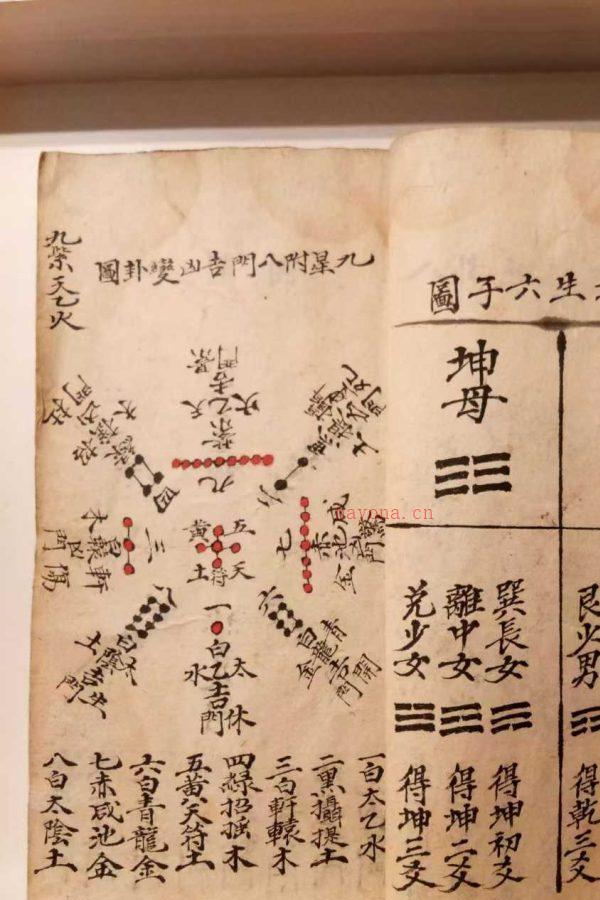 生六子圖
坤母
艮少男
巽長女
離中女
兌少女
得乾三爻
得坤初爻
得坤二爻
得坤三爻
九星附八門吉凶變卦圖
九
紫
火乙天
吉
景門
四
木
七
赤
咸池
金
門
三
木
軒轅
凶
傷門
五
黃
天符
土
六
白
青龍
吉
金
開門
八
白
吉
土
門
一
白
太乙
水
吉
休門
一白太乙水
二黑攝提土
三白軒轅木
四綠招搖木
五黃天符土
六白青龍金
七赤咸池金
八白太陰土
九紫天乙火
cayona.cn